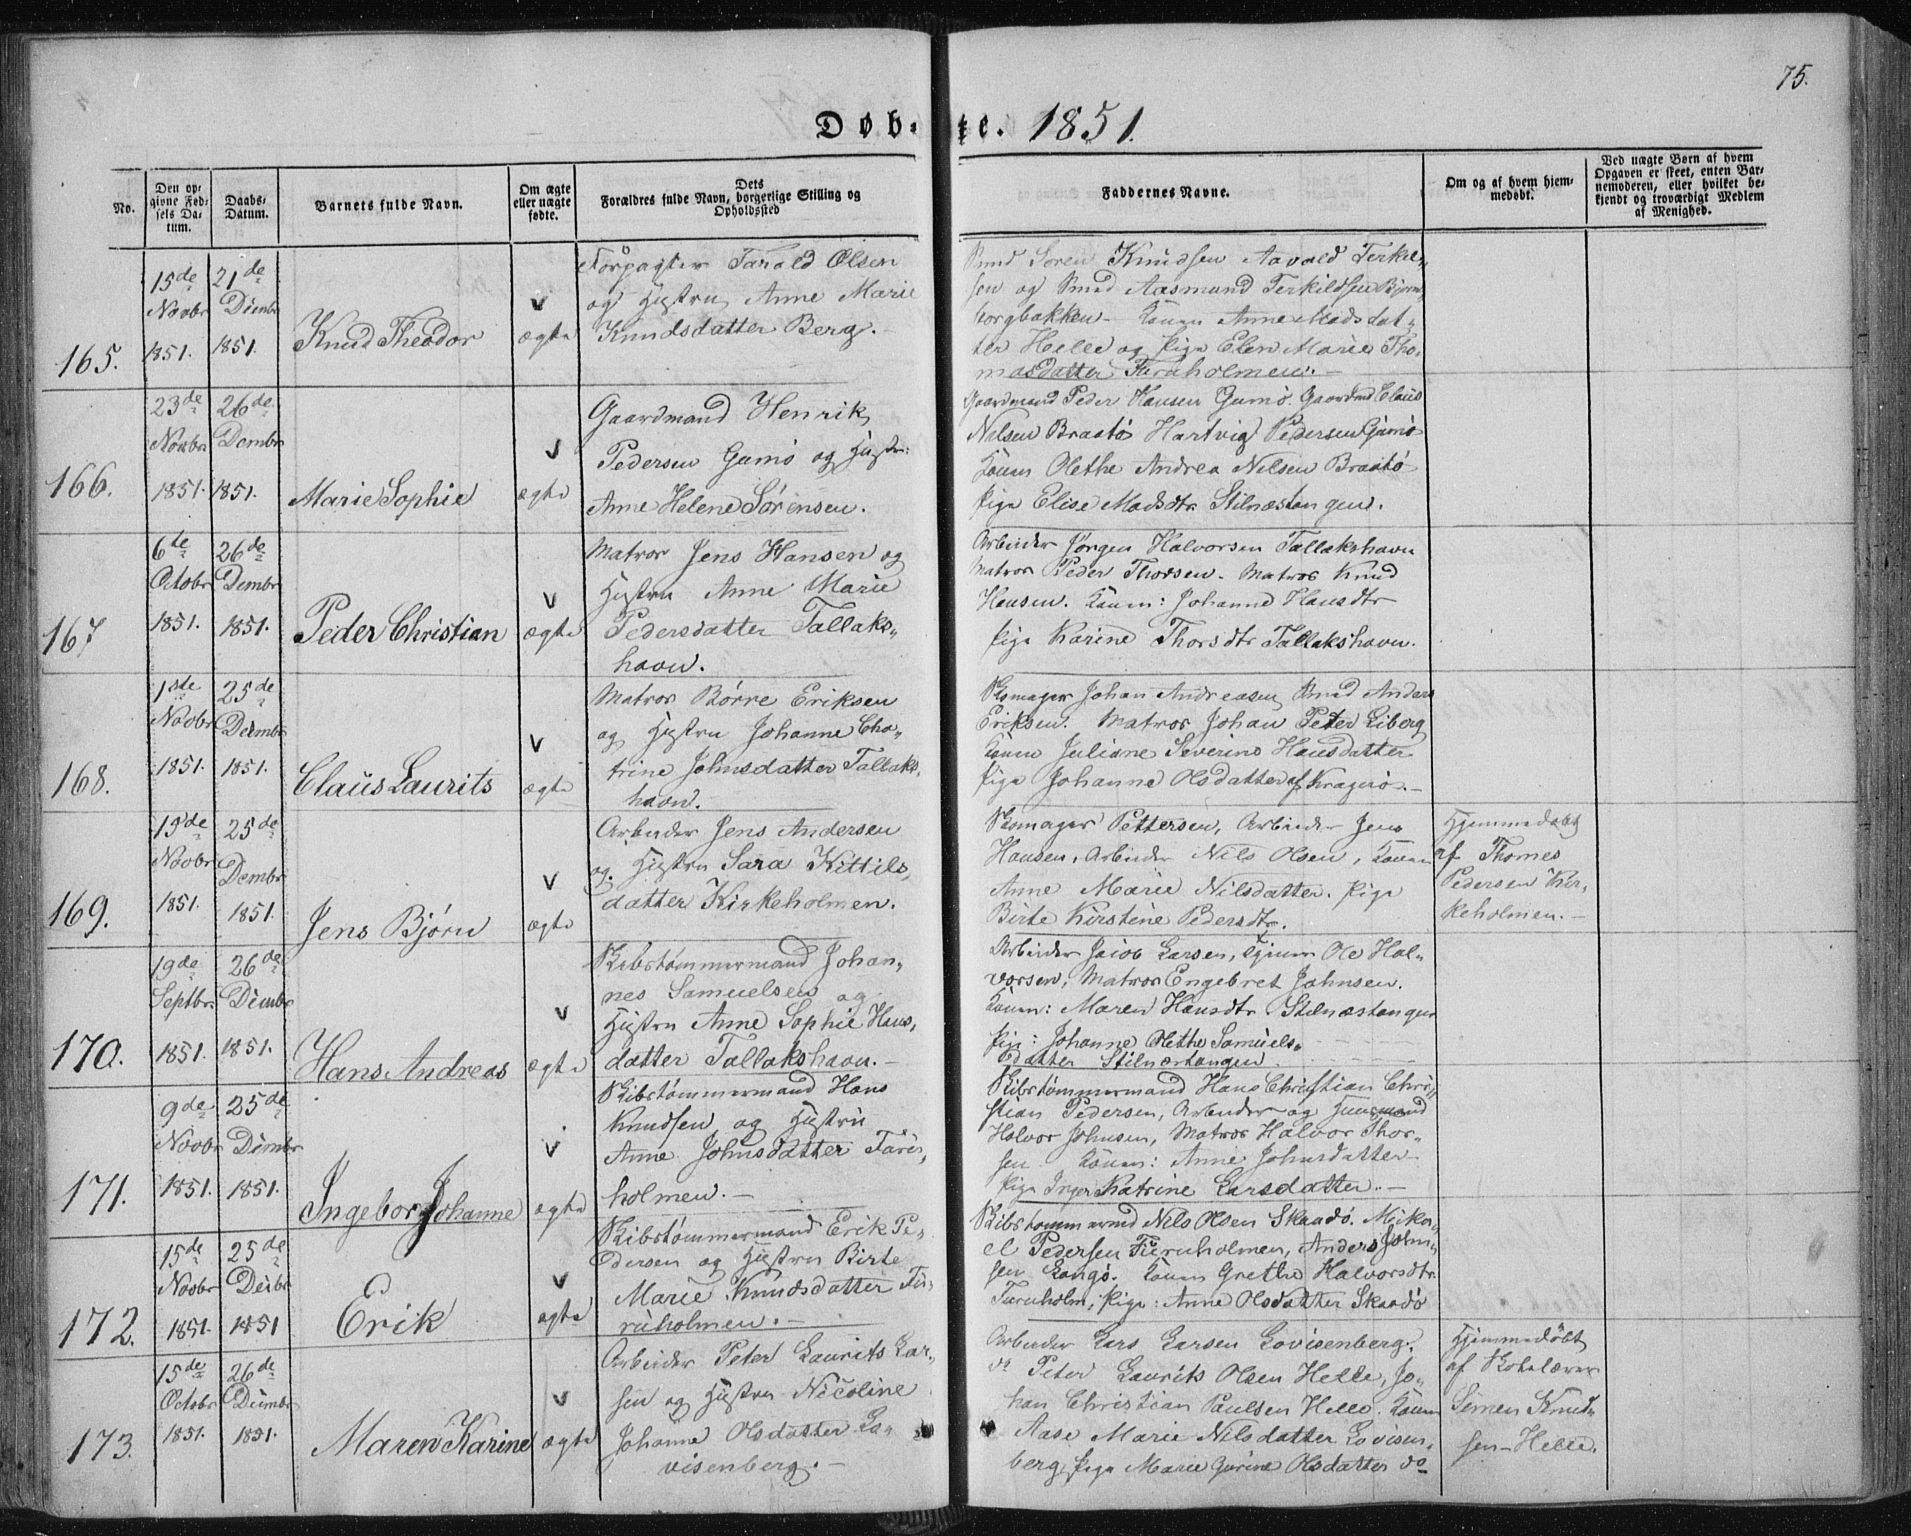 75.
Døb-te. 1851.
No.
Den op-
givne Fød-
sels Da-
tum.
Daabs-
Datum.
Barnets fulde Navn.
Om ægte
eller uægte
fødte.
Dets
Forældres fulde Navn, borgerlige Stilling og
Opholdssted
Faddernes Navne.
Om og af hvem hjem-
medøbt.
Ved uægte Børn af hvem
Opgaven er skeet, enten Bar-
nemoderen, eller hvilket be-
kjendt og troværdigt Medlem
af Menighed.
165.
15de
Novbr
1851.
21de
Dcmbr
1851.
Knud Theodor
v
ægte
Forpagter Tarald Olsen
og Hustru Anne Marie
Knudsdatter Berg.-
Smed Søren Knudsen Aavald Terkil-
sen og Smed Aasmund Terkildsen Bjørn
borgbakken- Konen Anne Madsdat-
ter Helle og Pige Elen Marie Tho-
masdatter Furuholmen.-
166.
23de
Novbr
1851.
26de
Dembr
1851.
Marie Sophie
v
ægte
Gaardmand Henrik
Pedersen Gumø og Hustr:
Anne Helene Sørensen.
Gaardmand Peder Hansen Gumø. Gaardmd Claus
Nilsen Braatø Hartvig Pedersen Gumø
Konen Olethe Andrea Nilsen Braatø
Pige Elise Madsdtr Stilnæstangen.
167
6te
Octobr
1851.
26de
Dembr
1851.
Peder Christian
v
ægte
Matros Jens Hansen og
Hustru Anne Marie
Pedersdatter Tallaks-
havn.
Arbeider Jørgen Halvorsen Tallakshavn
Matros Peder Thorsen. Matros Knud
Hansen. Konen: Johanne Hansdtr
Pige Karine Thorsdtr Tallakshavn.
168.
1ste
Novbr
1851.
25de
Deembr
1851.
Claus Laurits
v
ægte
Matros Børre Eriksen
og Hustru Johanne Cha-
trine Johnsdatter Tallaks-
havn.
Skomager Johan Andreasen Smed Anders
Eriksen. Matros Johan Peter Liberg
Konen Juliane Severine Hansdatter
Pige Johanne Olsdatter af Kragerø.-
169.
15de
Novbr
1851.
25de
Dembr
1851.
Jens Bjørn
v
ægte
Arbeider Jens Andersen
og Hustru Sara Kittils-
datter Kirkeholmen.
Skomager Pettersen, Arbeider Jens
Hansen, Arbeider Nils Olsen, Konen
Anne Marie Nilsdatter. Pige
Birte Kirstine Pedersdtr.
Hjemmedøbt
af Thomes
Pedersen Kir-
keholmen.-
170.
19de
Septbr
1851.
26de
Deimbr
1851.
Hans Andreas
v
ægte
Skibstømmermand Johan-
nes Samuelsen og
Hustru Anne Sophie Hans-
datter Tallakshavn.-
Arbeider Jacob Larsen, Ole Hal-
vorsen, Matros Engebret Johnsen.
Konen: Maren Hansdtr Stilnæstangen
Pige: Johanne Olethe Samuels-
datter Stilnæstangen
171.
9de
Novbr
1851.
25de
Deimbr
1851.
Ingebor Johanne
v
ægte
Skibstømmermand Hans
Knudsen og Hustru
Anne Johnsdatter Furu-
holmen.-
Skibstømmermand Hans Christian Chri-
stian Pedersen, Arbeider og Huusmand
Halvor Johnsen, Matros Halvor Thor-
sen Konen: Anne Johnsdatter
Pige Inger Katrine Larsdatter.-
172.
15de
Novbr
1851.
25de
Deibr
1851
Erik
v
ægte
Skibstømmermand Erik Pe-
dersen og Hustru Birte
Marie Knudsdatter Fu-
ruholmen.-
Skibstømmermd Nils Olsen Skaadø. Mika-
el Pedersen Furuholmen, Anders John-
sen Langø. Konen Grethe Halvorsdtr
Furuholm, Pige: Anne Olsdatter Skaadø
173.
15de
Octobr
1851.
26de
Deembr
1851.
Maren Karine
v
ægte
Arbeider Peter Laurits Lar-
sen og Hustru Nicoline
Johanne Olsdatter Lo-
visenberg.-
Arbeider Lars Larsen Lovisenberg.
do Peter Laurits Olsen Helle, Jo-
han Christian Paulsen Helle. Konen
Aase Marie Nilsdatter Lovisen-
berg, Pige Marie Gurine Olsdatter do
Hjemmedøbt
af Skolelærer
Simen Knud-
sen-Helle.